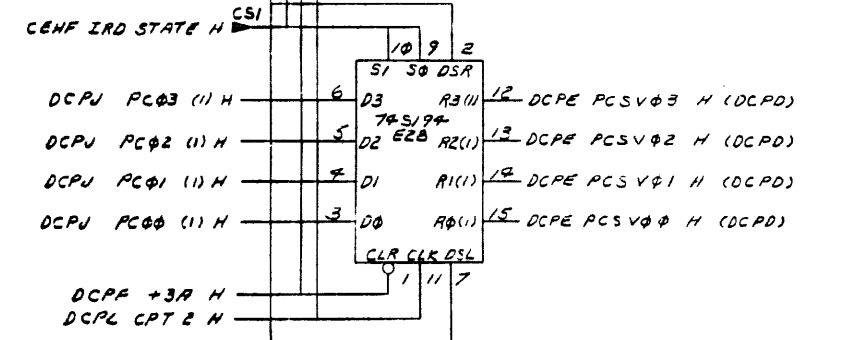 CS1
CEHF IRD STATE H
10 9 2
S1 S0 DSR
DCPJ PCφ3 (1) H 6 D3 R3(1) 12 DCPE PCSVφ3 H (DCPD)
74S194
E28
DCPJ PCφ2 (1) H 5 D2 R2(1) 13 DCPE PCSVφ2 H (DCPD)
DCPJ PCφ1 (1) H 4 D1 R1(1) 14 DCPE PCSVφ1 H (DCPD)
DCPJ PCφφ (1) H 3 Dφ Rφ(1) 15 DCPE PCSVφφ H (DCPD)
CLR CLK DSL
1 11 7
DCPF +3A H
DCPL CPT 2 H